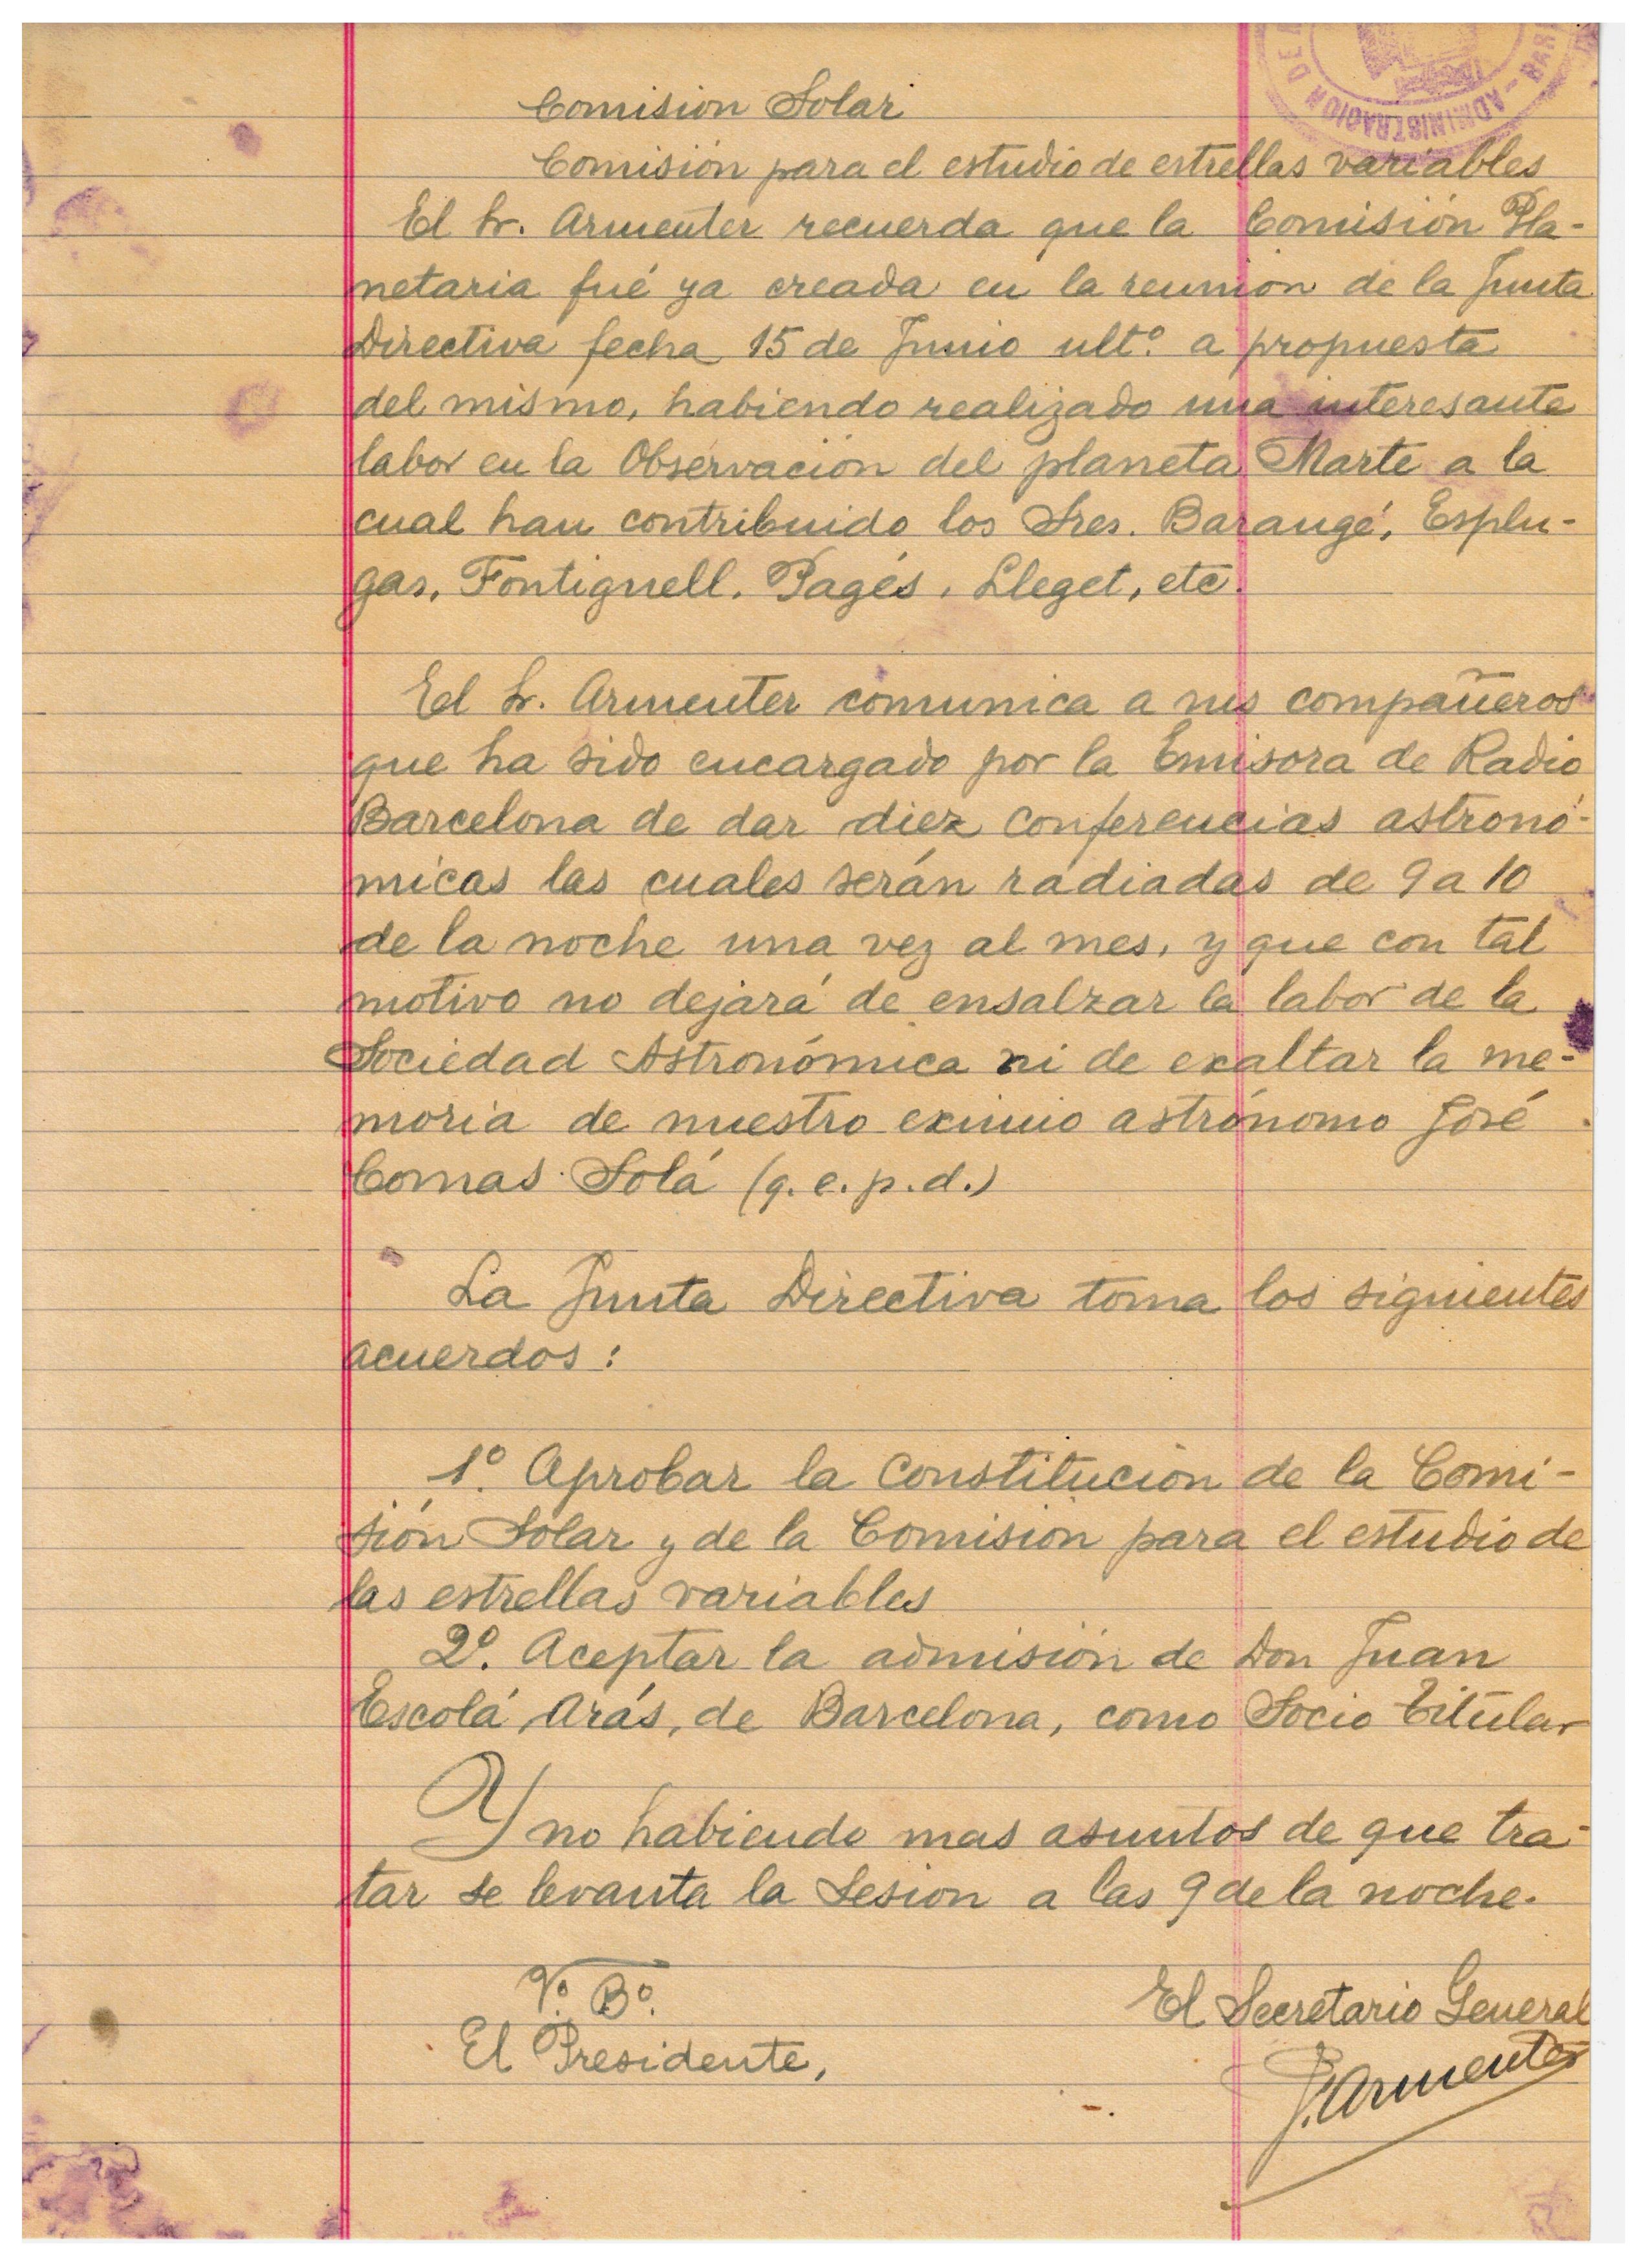 Comision Solar
Comisión para el estudio de estrellas variables
El Sr. Armenter recuerda que la Comisión Pla-
netaria fué ya creada en la reunion de la Junta
Directiva fecha 15 de Junio ultº. a propuesta
del mismo, habiendo realizado una interesante
labor en la Observación del planeta Marte a la
cual han contribuido los Sres. Barangé, Esplu-
gas, Fontignell, Pagés, Lleget, etc.
El Sr. Armenter comunica a sus compañeros
que ha sido encargado por la Emisora de Radio
Barcelona de dar diez conferencias astronó-
micas las cuales serán radiadas de 9 a 10
de la noche una vez al mes, y que con tal
motivo no dejará de ensalzar la labor de la
Sociedad Astronómica ni de exaltar la me-
moria de nuestro eximio astrónomo José
Comas Solá (q. e. p. d.)
La Junta Directiva toma los siguientes
acuerdos:
1º. Aprobar la Constitución de la Comi-
sión Solar y de la Comisión para el estudio de
las estrellas variables
2º. Aceptar la admisión de Don Juan
Escolá Arás, de Barcelona, como Socio titular
Y no habiendo mas asuntos de que tra-
tar se levanta la Sesion a las 9 de la noche.
Vº. Bº.
El Presidente,
El Secretario General
J. Armenter
ADMINISTRACION DE